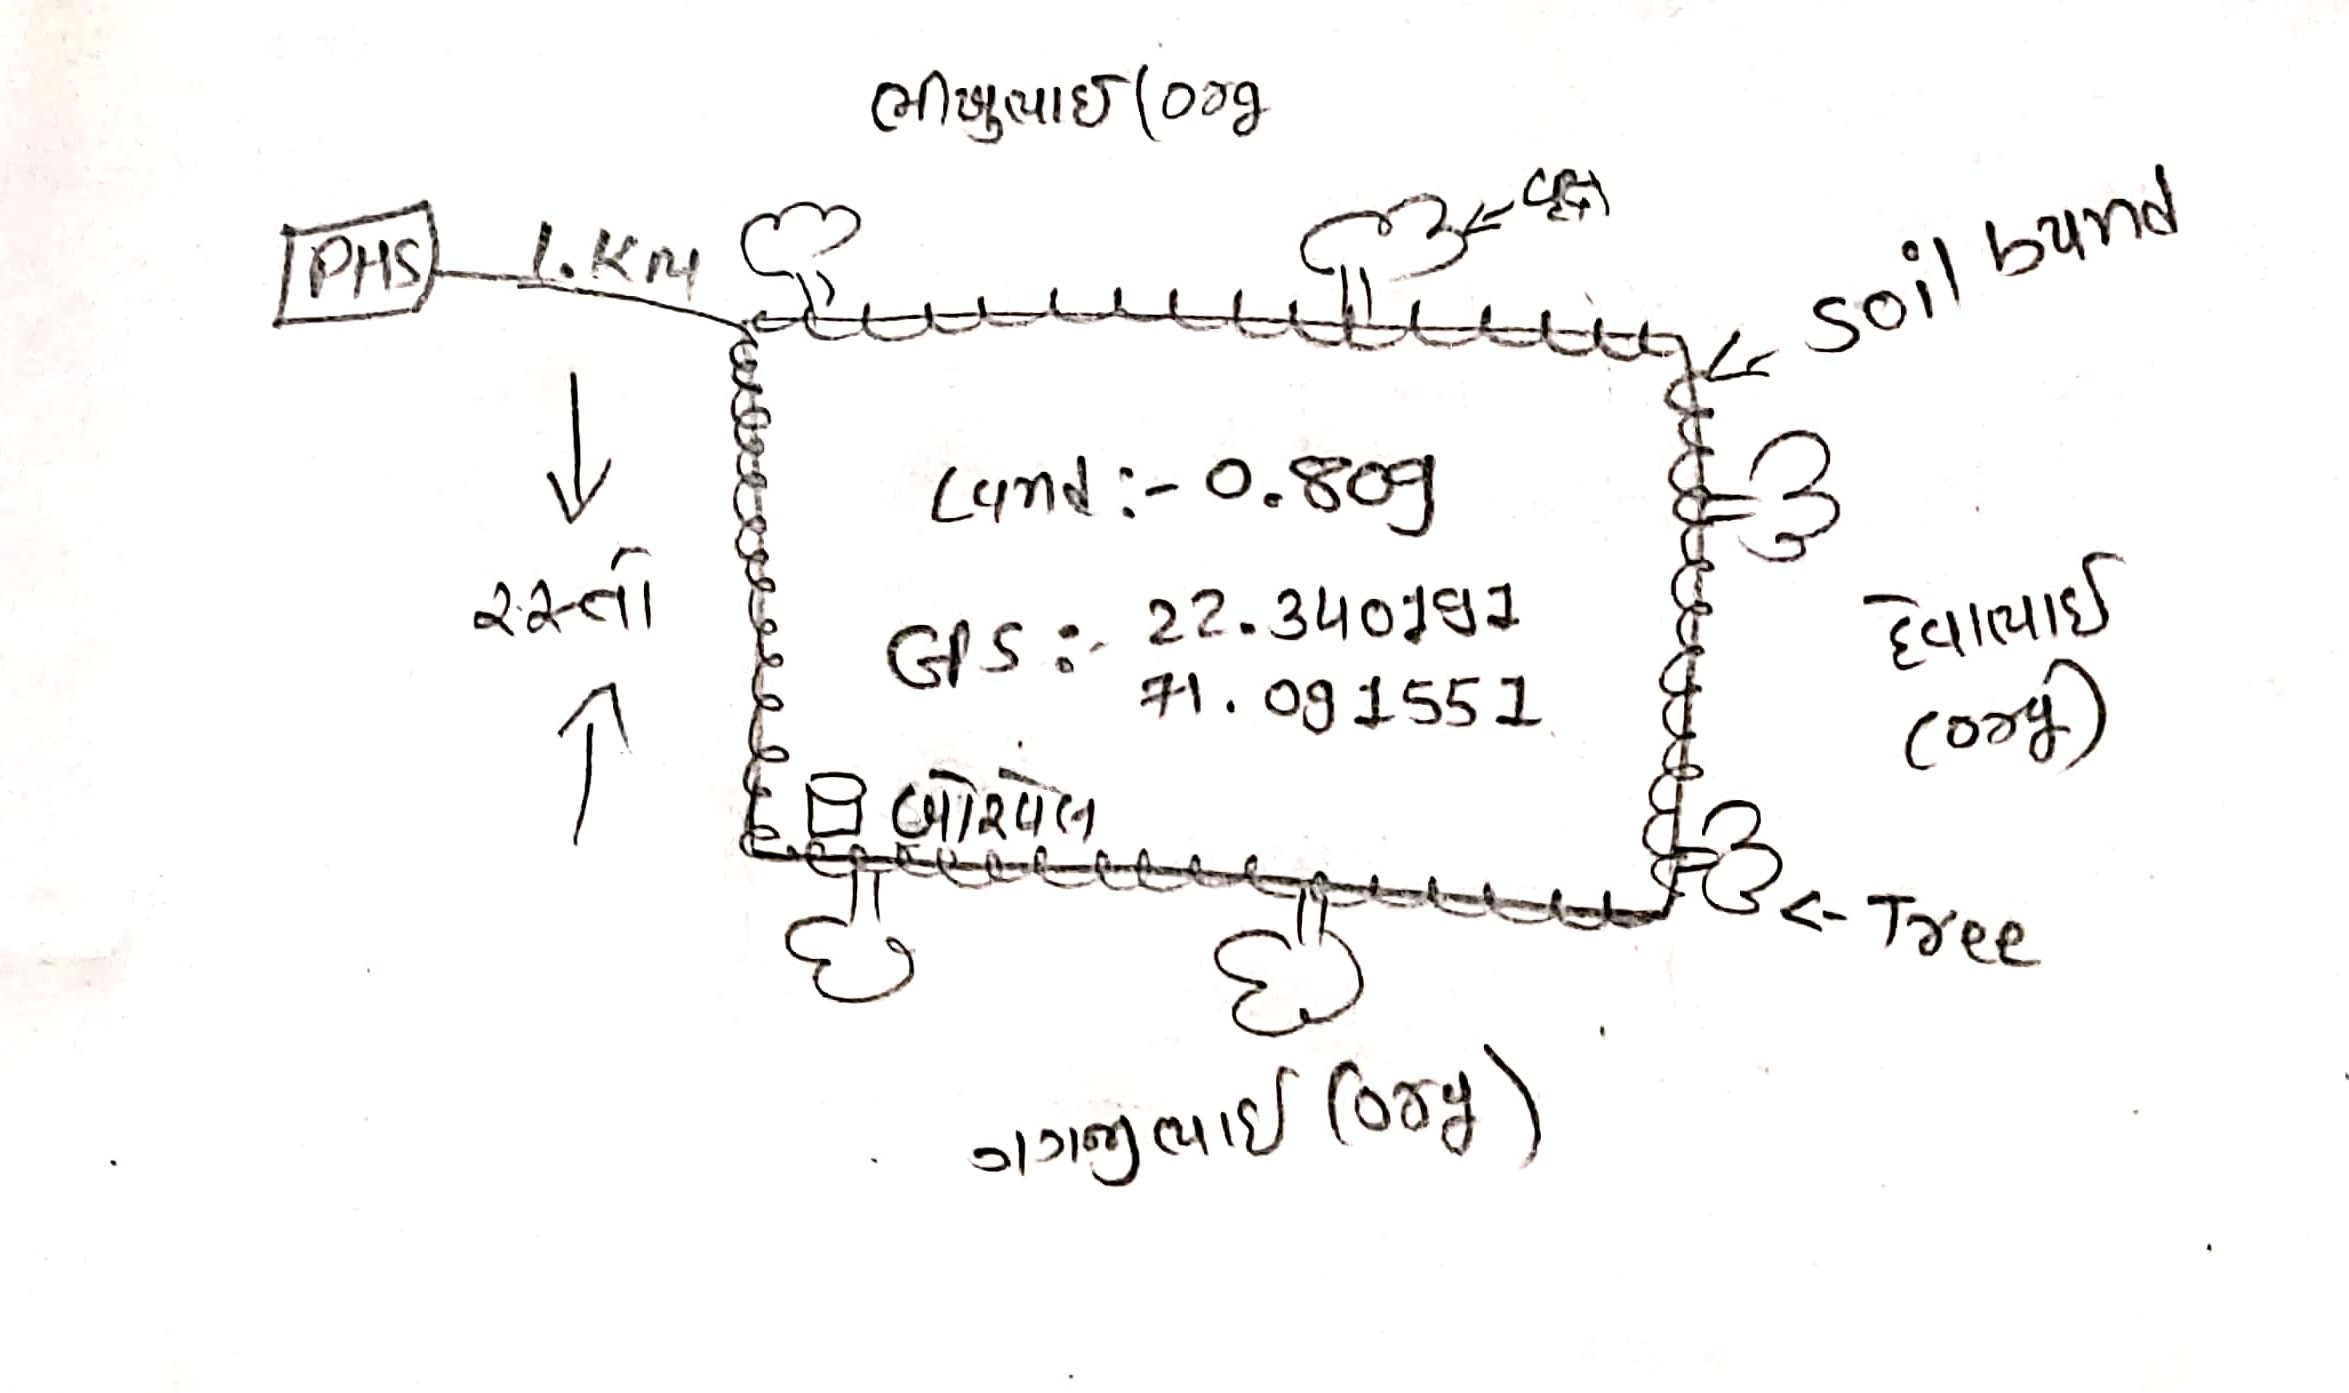 ભીખુભાઈ (org
વૃક્ષ
PHS
1.KM
soil bund
Land :- 0.809
રસ્તો
GPS :- 22.340191
71.091551
દેવાભાઈ
(org)
બોરવેલ
<- Tree
ગગજીભાઈ (org)